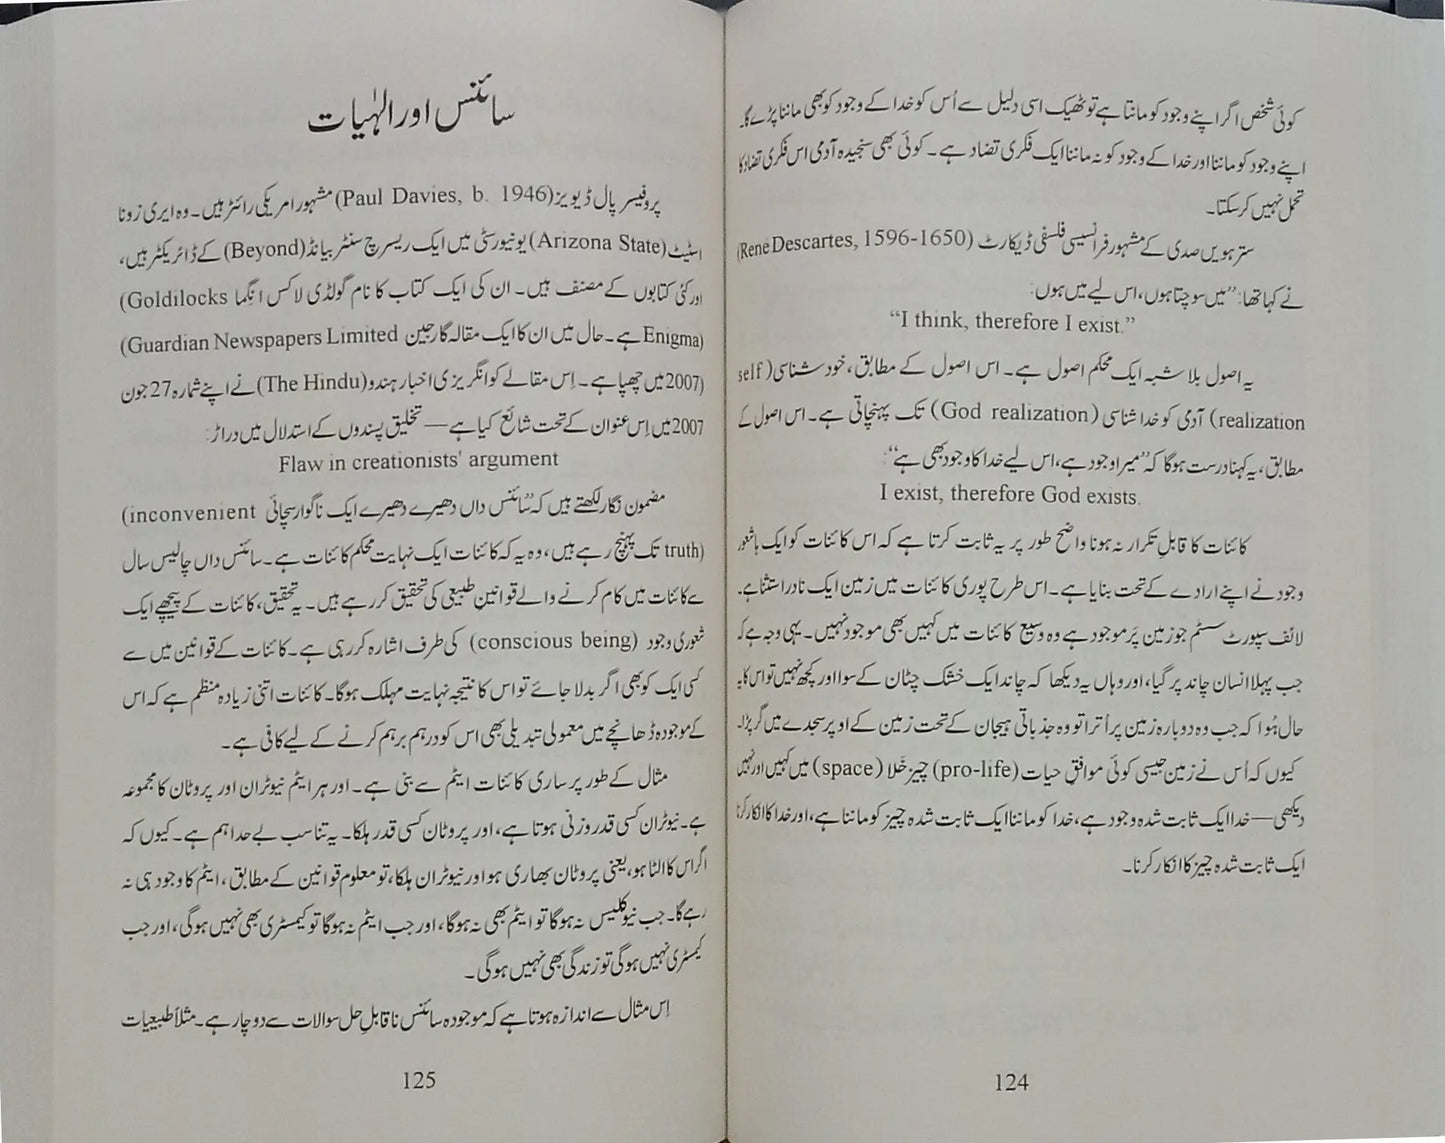 کوئی شخص اگر اپنے وجود کو مانتا ہے تو ٹھیک اسی دلیل سے اُس کو خدا کے وجود کو بھی ماننا پڑے گا۔
اپنے وجود کو ماننا اور خدا کے وجود کو نہ ماننا ایک فکری تضاد ہے۔ کوئی بھی سنجیدہ آدمی اس فکری تضاد کا
تحمل نہیں کرسکتا۔
سترہویں صدی کے مشہور فرانسیسی فلسفی ڈیکارٹ (René Descartes, 1596-1650)
نے کہا تھا: ”میں سوچتا ہوں، اس لیے میں ہوں:
“I think, therefore I exist.”
یہ اصول بلاشبہ ایک محکم اصول ہے۔ اس اصول کے مطابق، خود شناسی (self
realization) آدمی کو خدا شناسی (God realization) تک پہنچاتی ہے۔ اس اصول کے
مطابق، یہ کہنا درست ہوگا کہ ”میرا وجود ہے، اس لیے خدا کا وجود بھی ہے“:
I exist, therefore God exists.
کائنات کا قابلِ تکرار نہ ہونا واضح طور پر یہ ثابت کرتا ہے کہ اس کائنات کو ایک باشعور
وجود نے اپنے ارادے کے تحت بنایا ہے۔ اس طرح پوری کائنات میں زمین ایک نادر استثنا ہے۔
لائف سپورٹ سسٹم جو زمین پر موجود ہے وہ وسیع کائنات میں کہیں بھی موجود نہیں۔ یہی وجہ ہے کہ
جب پہلا انسان چاند پر گیا، اور وہاں یہ دیکھا کہ چاند ایک خشک چٹان کے سوا اور کچھ نہیں تو اس کا یہ
حال ہُوا کہ جب وہ دوبارہ زمین پر اُترا تو وہ جذباتی ہیجان کے تحت زمین کے اوپر سجدے میں گر پڑا۔
کیوں کہ اُس نے زمین جیسی کوئی موافقِ حیات (pro-life) چیز خَلا (space) میں کہیں اور نہیں
دیکھی—خدا ایک ثابت شدہ وجود ہے، خدا کو ماننا ایک ثابت شدہ چیز کو ماننا ہے، اور خدا کا انکار کرنا
ایک ثابت شدہ چیز کا انکار کرنا۔
124
سائنس اور الٰہیات
پروفیسر پال ڈیویز (Paul Davies, b. 1946) مشہور امریکی رائٹر ہیں۔ وہ ایری زونا
اسٹیٹ (Arizona State) یونیورسٹی میں ایک ریسرچ سنٹر بیانڈ (Beyond) کے ڈائریکٹر ہیں،
اور کئی کتابوں کے مصنف ہیں۔ ان کی ایک کتاب کا نام گولڈی لاکس اِنگما (Goldilocks
Enigma) ہے۔ حال میں ان کا ایک مقالہ گارجین (Guardian Newspapers Limited
2007) میں چھپا ہے۔ اِس مقالے کو انگریزی اخبار ہندو (The Hindu) نے اپنے شمارہ 27 جون
2007 میں اِس عنوان کے تحت شائع کیا ہے — تخلیق پسندوں کے استدلال میں دراڑ:
Flaw in creationists' argument
مضمون نگار لکھتے ہیں کہ ”سائنس داں دھیرے دھیرے ایک ناگوار سچائی (inconvenient
truth) تک پہنچ رہے ہیں، وہ یہ کہ کائنات ایک نہایت محکم کائنات ہے۔ سائنس داں چالیس سال
سے کائنات میں کام کرنے والے قوانین طبیعی کی تحقیق کر رہے ہیں۔ یہ تحقیق، کائنات کے پیچھے ایک
شعوری وجود (conscious being) کی طرف اشارہ کر رہی ہے۔ کائنات کے قوانین میں سے
کسی ایک کو بھی اگر بدلا جائے تو اس کا نتیجہ نہایت مہلک ہوگا۔ کائنات اتنی زیادہ منظم ہے کہ اس
کے موجودہ ڈھانچے میں معمولی تبدیلی بھی اس کو درہم برہم کرنے کے لیے کافی ہے۔
مثال کے طور پر ساری کائنات ایٹم سے بنی ہے۔ اور ہر ایٹم نیوٹران اور پروٹان کا مجموعہ
ہے۔ نیوٹران کسی قدر وزنی ہوتا ہے، اور پروٹان کسی قدر ہلکا۔ یہ تناسب بے حد اہم ہے۔ کیوں کہ
اگر اس کا الٹا ہو، یعنی پروٹان بھاری ہو اور نیوٹران ہلکا، تو معلوم قوانین کے مطابق، ایٹم کا وجود ہی نہ
رہے گا۔ جب نیوکلیس نہ ہوگا تو ایٹم بھی نہ ہوگا، اور جب ایٹم نہ ہوگا تو کیمسٹری بھی نہیں ہوگی، اور جب
کیمسٹری نہیں ہوگی تو زندگی بھی نہیں ہوگی۔
اِس مثال سے اندازہ ہوتا ہے کہ موجودہ سائنس ناقابلِ حل سوالات سے دوچار ہے۔ مثلاً طبیعیات
125